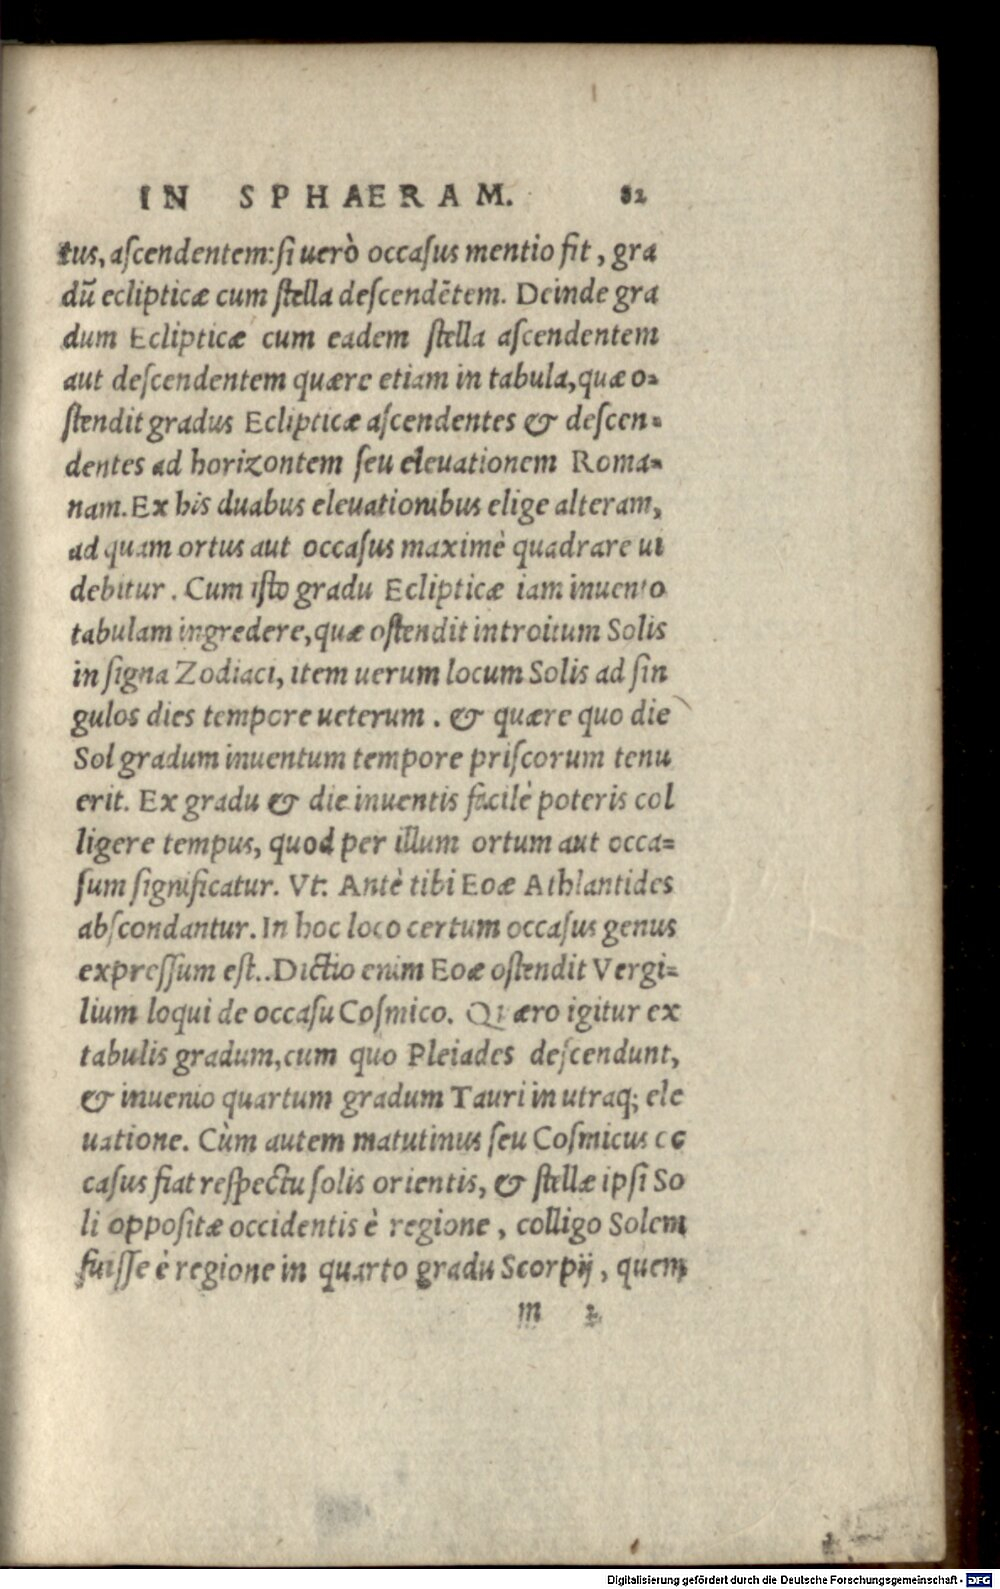 IN SPHAERAM. 82
tus, aſcendentem: ſi uerò occaſus mentio fit, gra
dũ eclipticæ cum ſtella deſcendẽtem. Deinde gra
dum Eclipticæ cum eadem ſtella aſcendentem
aut deſcendentem quære etiam in tabula, quæ o-
ſtendit gradus Eclipticæ aſcendentes & deſcen-
dentes ad horizontem ſeu eleuationem Roma-
nam. Ex his duabus eleuationibus elige alteram,
ad quam ortus aut occaſus maximè quadrare ui
debitur. Cum iſto gradu Eclipticæ iam inuento
tabulam ingredere, quæ oſtendit introitum Solis
in ſigna Zodiaci, item uerum locum Solis ad ſin
gulos dies tempore ueterum. & quære quo die
Sol gradum inuentum tempore priſcorum tenu
erit. Ex gradu & die inuentis facilè poteris col
ligere tempus, quod per illum ortum aut occa=
ſum ſignificatur. Vt: Antè tibi Eoæ Athlantides
abſcondantur. In hoc loco certum occaſus genus
expreſſum eſt.. Dictio enim Eoæ oſtendit Vergi=
lium loqui de occaſu Coſmico. Quæro igitur ex
tabulis gradum, cum quo Pleiades deſcendunt,
& inuenio quartum gradum Tauri in utraq; ele
uatione. Cùm autem matutinus ſeu Coſmicus oc
caſus fiat reſpectu ſolis orientis, & ſtellæ ipſi So
li oppoſitæ occidentis è regione, colligo Solem
fuiſſe è regione in quarto gradu Scorpij, quem
m 2
Digitalisierung gefördert durch die Deutsche Forschungsgemeinschaft - DFG